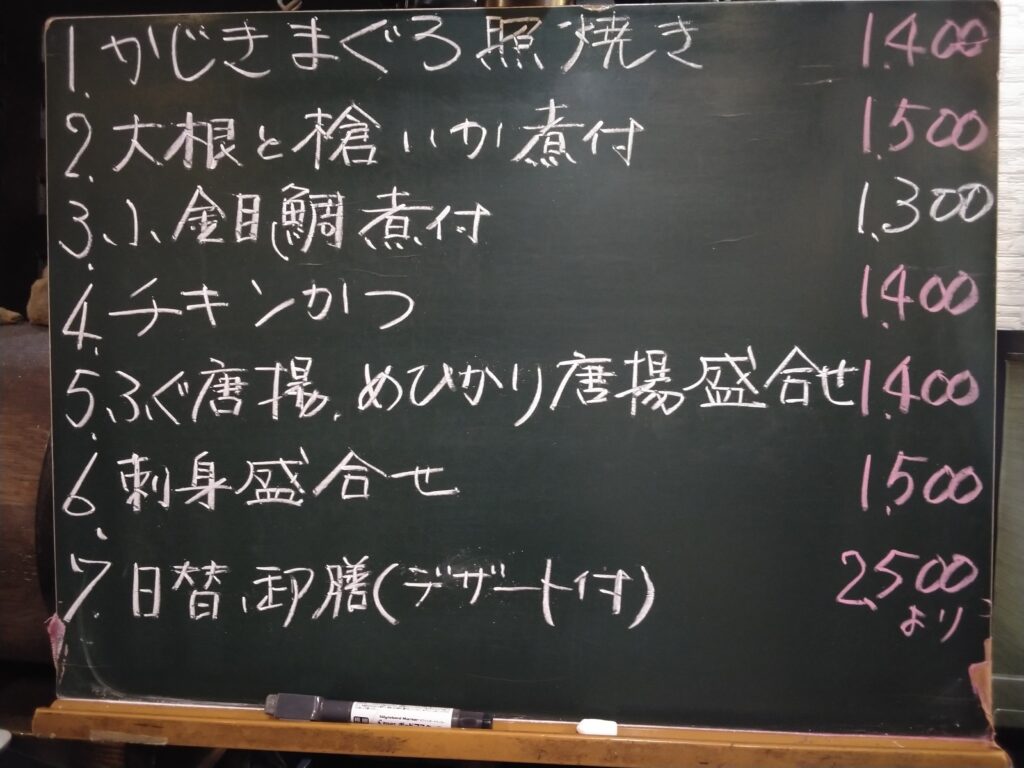 1. かじきまぐろ照焼き 1.400
2. 大根と槍いか煮付 1.500
3. 小金目鯛煮付 1.300
4. チキンかつ 1.400
5. ふぐ唐揚、めひかり唐揚盛合せ 1.400
6. 刺身盛合せ 1.500
7. 日替り御膳(デザート付) 2.500
より